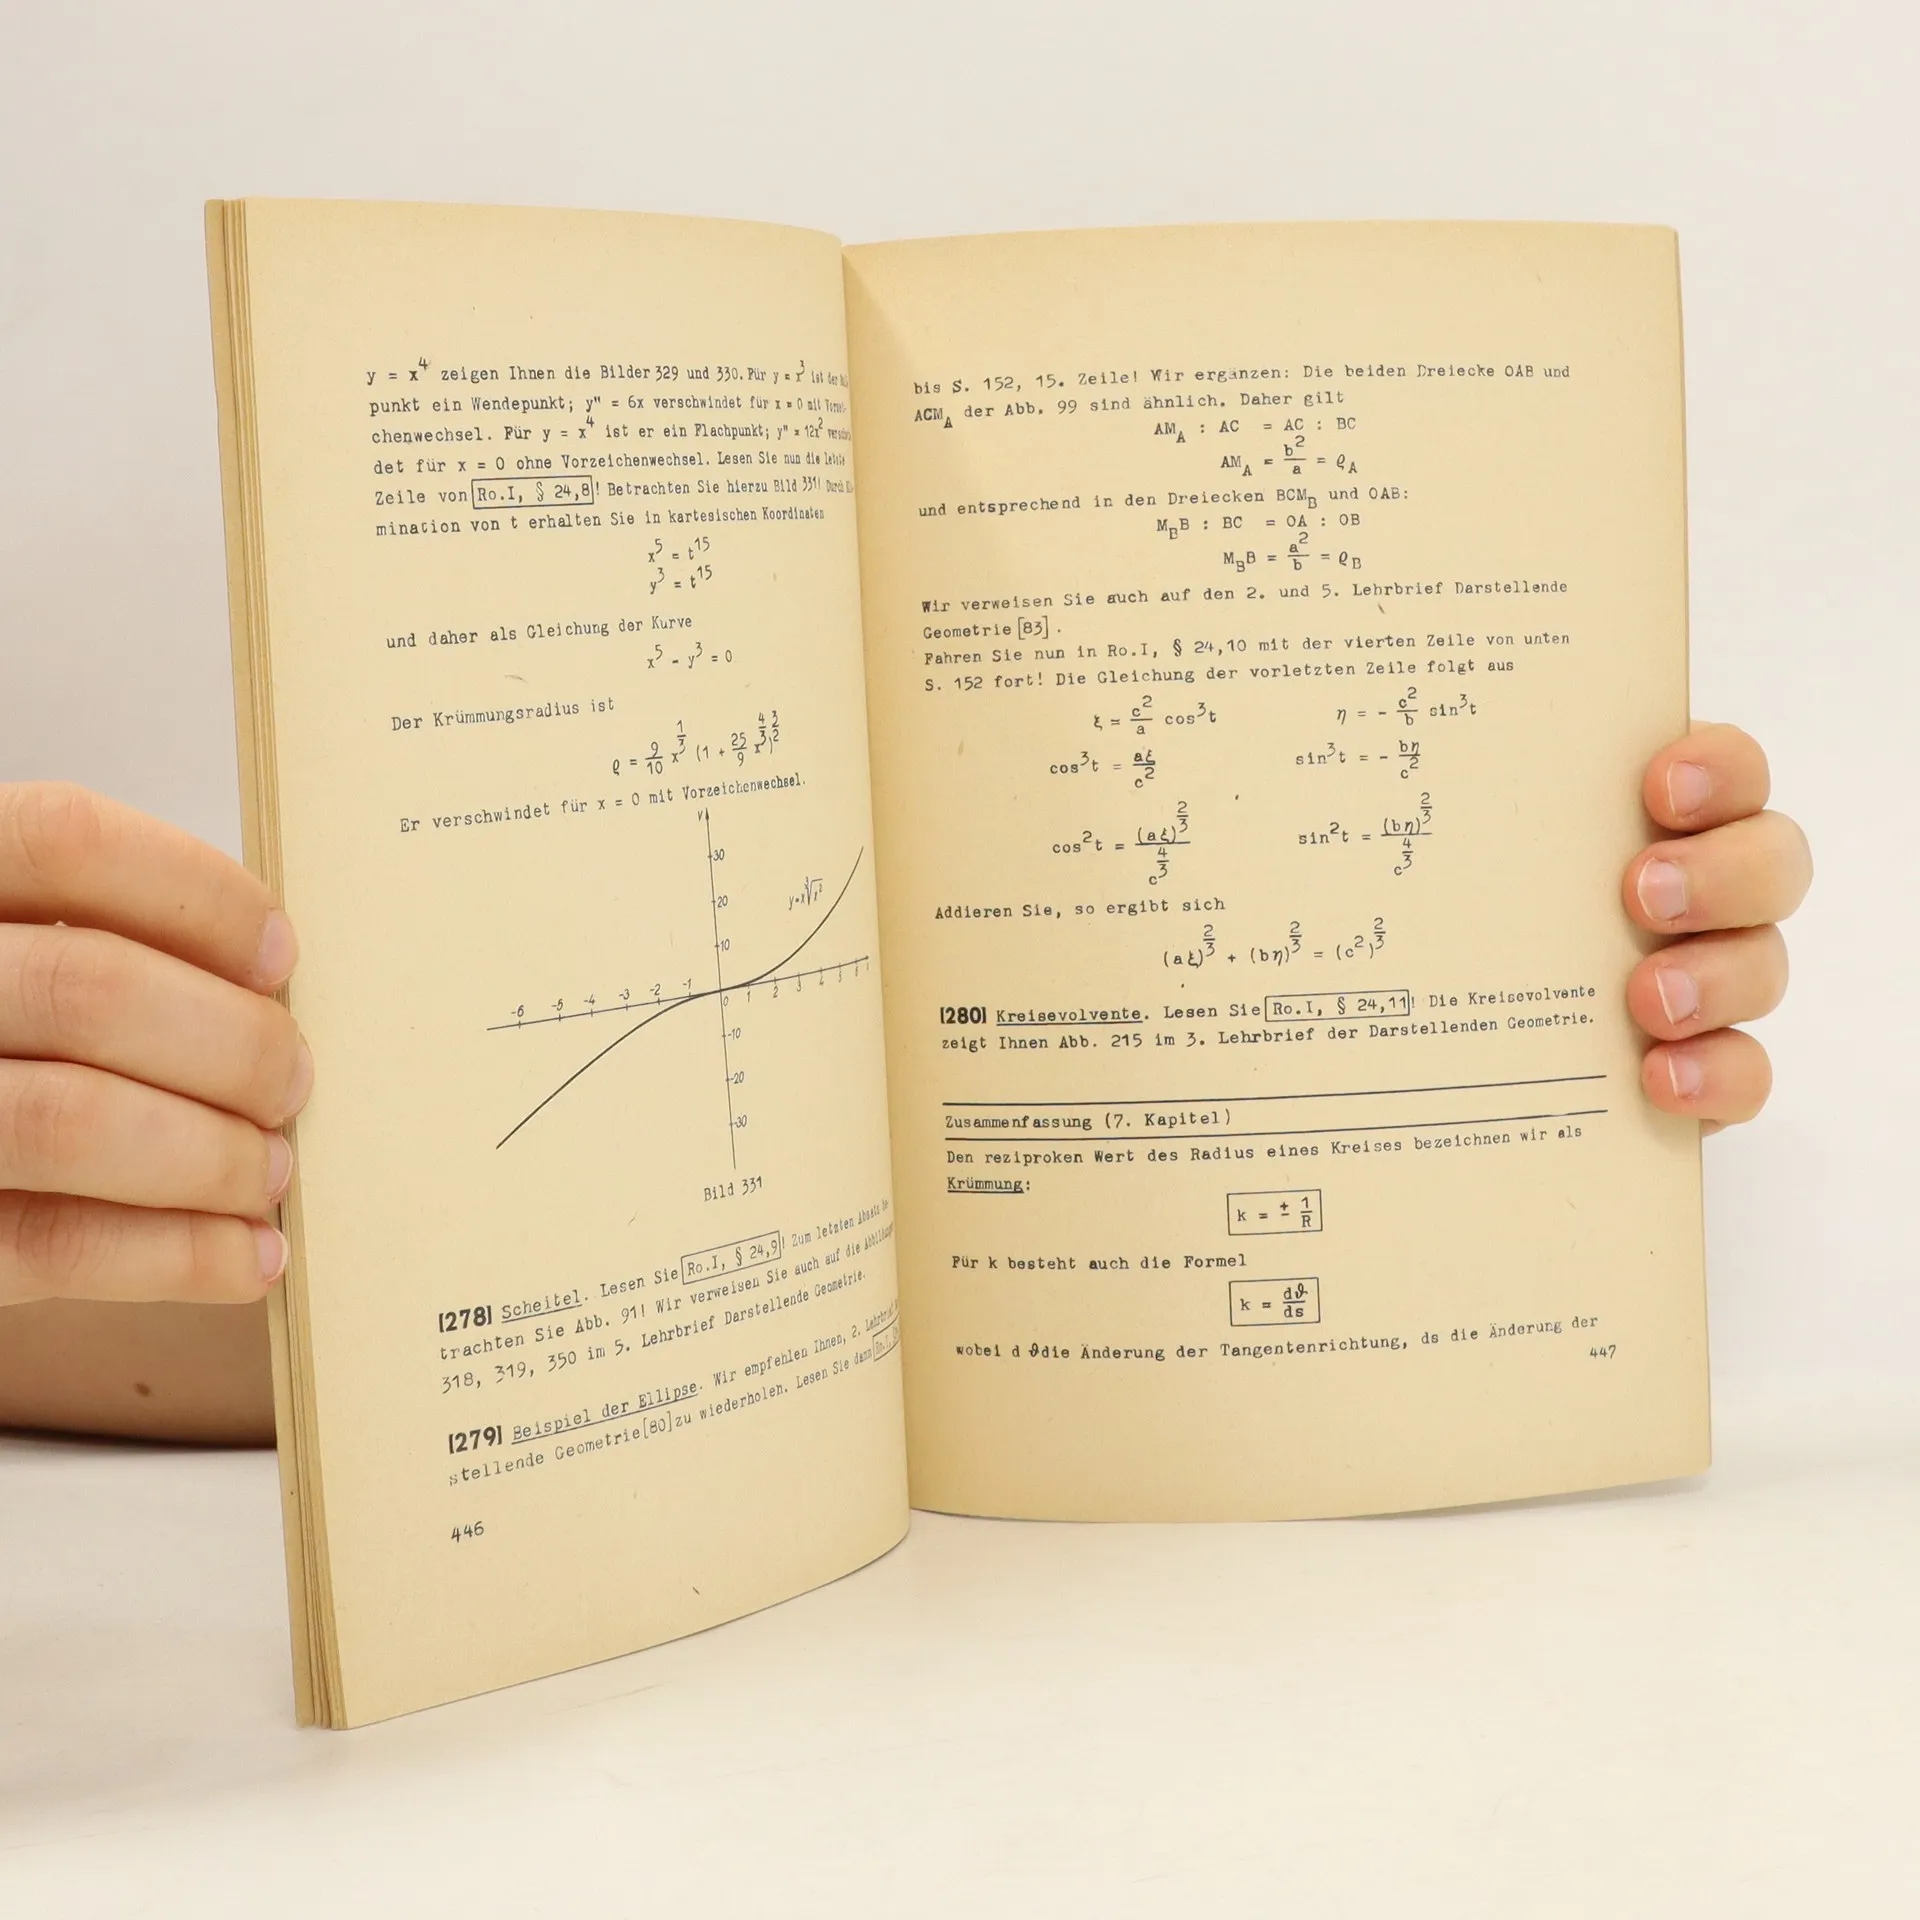 y = x⁴ zeigen Ihnen die Bilder 329 und 330. Für y = x³ ist der
punkt ein Wendepunkt; y" = 6x verschwindet für x = 0 mit Vorzei-
chenwechsel. Für y = x⁴ ist er ein Flachpunkt; y" = 12x²
det für x = 0 ohne Vorzeichenwechsel. Lesen Sie nun die letzte
Zeile von Ro.I, § 24,8! Betrachten Sie hierzu Bild 331! Durch
mination von t erhalten Sie in kartesischen Koordinaten
x⁵ = t¹⁵
y³ = t¹⁵
und daher als Gleichung der Kurve
x⁵ - y³ = 0
Der Krümmungsradius ist
ϱ = 9/10 x^(1/3) (1 + 25/9 x^(4/3))^(3/2)
Er verschwindet für x = 0 mit Vorzeichenwechsel.
y
30
20
y=x∛x²
10
-6 -5 -4 -3 -2 -1 0 1 2 3 4 5 6
-10
-20
-30
Bild 331
[278] Scheitel. Lesen Sie Ro.I, § 24,9! Zum letzten Absatz be-
trachten Sie Abb. 91! Wir verweisen Sie auch auf die Abbildungen
318, 319, 350 im 5. Lehrbrief Darstellende Geometrie.
[279] Beispiel der Ellipse. Wir empfehlen Ihnen, 2. Lehrbrief
stellende Geometrie [80] zu wiederholen. Lesen Sie dann
446
bis S. 152, 15. Zeile! Wir ergänzen: Die beiden Dreiecke OAB und
ACM_A der Abb. 99 sind ähnlich. Daher gilt
AM_A : AC = AC : BC
AM_A = b²/a = ϱ_A
und entsprechend in den Dreiecken BCM_B und OAB:
M_BB : BC = OA : OB
M_BB = a²/b = ϱ_B
Wir verweisen Sie auch auf den 2. und 5. Lehrbrief Darstellende
Geometrie [83].
Fahren Sie nun in Ro.I, § 24,10 mit der vierten Zeile von unten
S. 152 fort! Die Gleichung der vorletzten Zeile folgt aus
ξ = c²/a cos³t η = - c²/b sin³t
cos³t = aξ/c² sin³t = - bη/c²
cos²t = (aξ)^(2/3)/c^(4/3) sin²t = (bη)^(2/3)/c^(4/3)
Addieren Sie, so ergibt sich
(aξ)^(2/3) + (bη)^(2/3) = (c²)^(2/3)
[280] Kreisevolvente. Lesen Sie Ro.I, § 24,11! Die Kreisevolvente
zeigt Ihnen Abb. 215 im 3. Lehrbrief der Darstellenden Geometrie.
Zusammenfassung (7. Kapitel)
Den reziproken Wert des Radius eines Kreises bezeichnen wir als
Krümmung:
k = ± 1/R
Für k besteht auch die Formel
k = dϑ/ds
wobei d ϑ die Änderung der Tangentenrichtung, ds die Änderung der
447